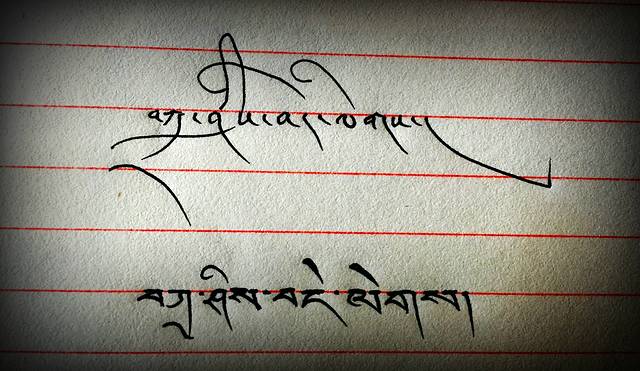 བཀྲ་ཤིས་བདེ་ལེགས།
བཀྲ་ཤིས་བདེ་ལེགས།